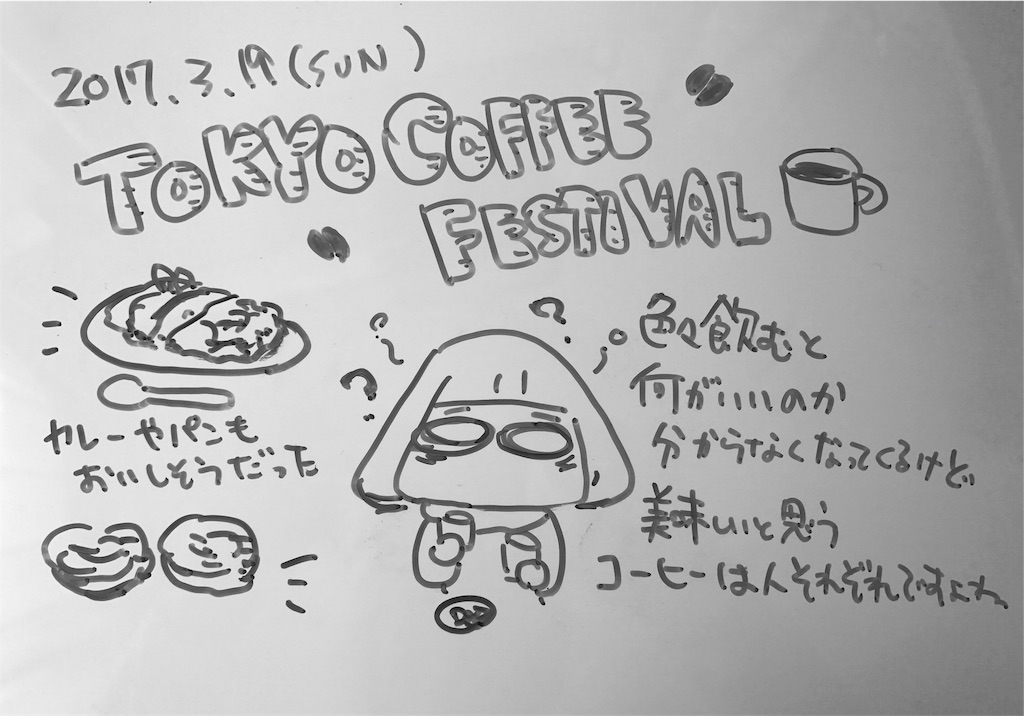 2017.3.19(SUN)
TOKYO COFFEE
FESTIVAL
色々飲むと
何がいいのか
分からなくなってくるけど
美味いと思う
コーヒーは人それぞれですよね
カレーやパンも
おいしそうだった